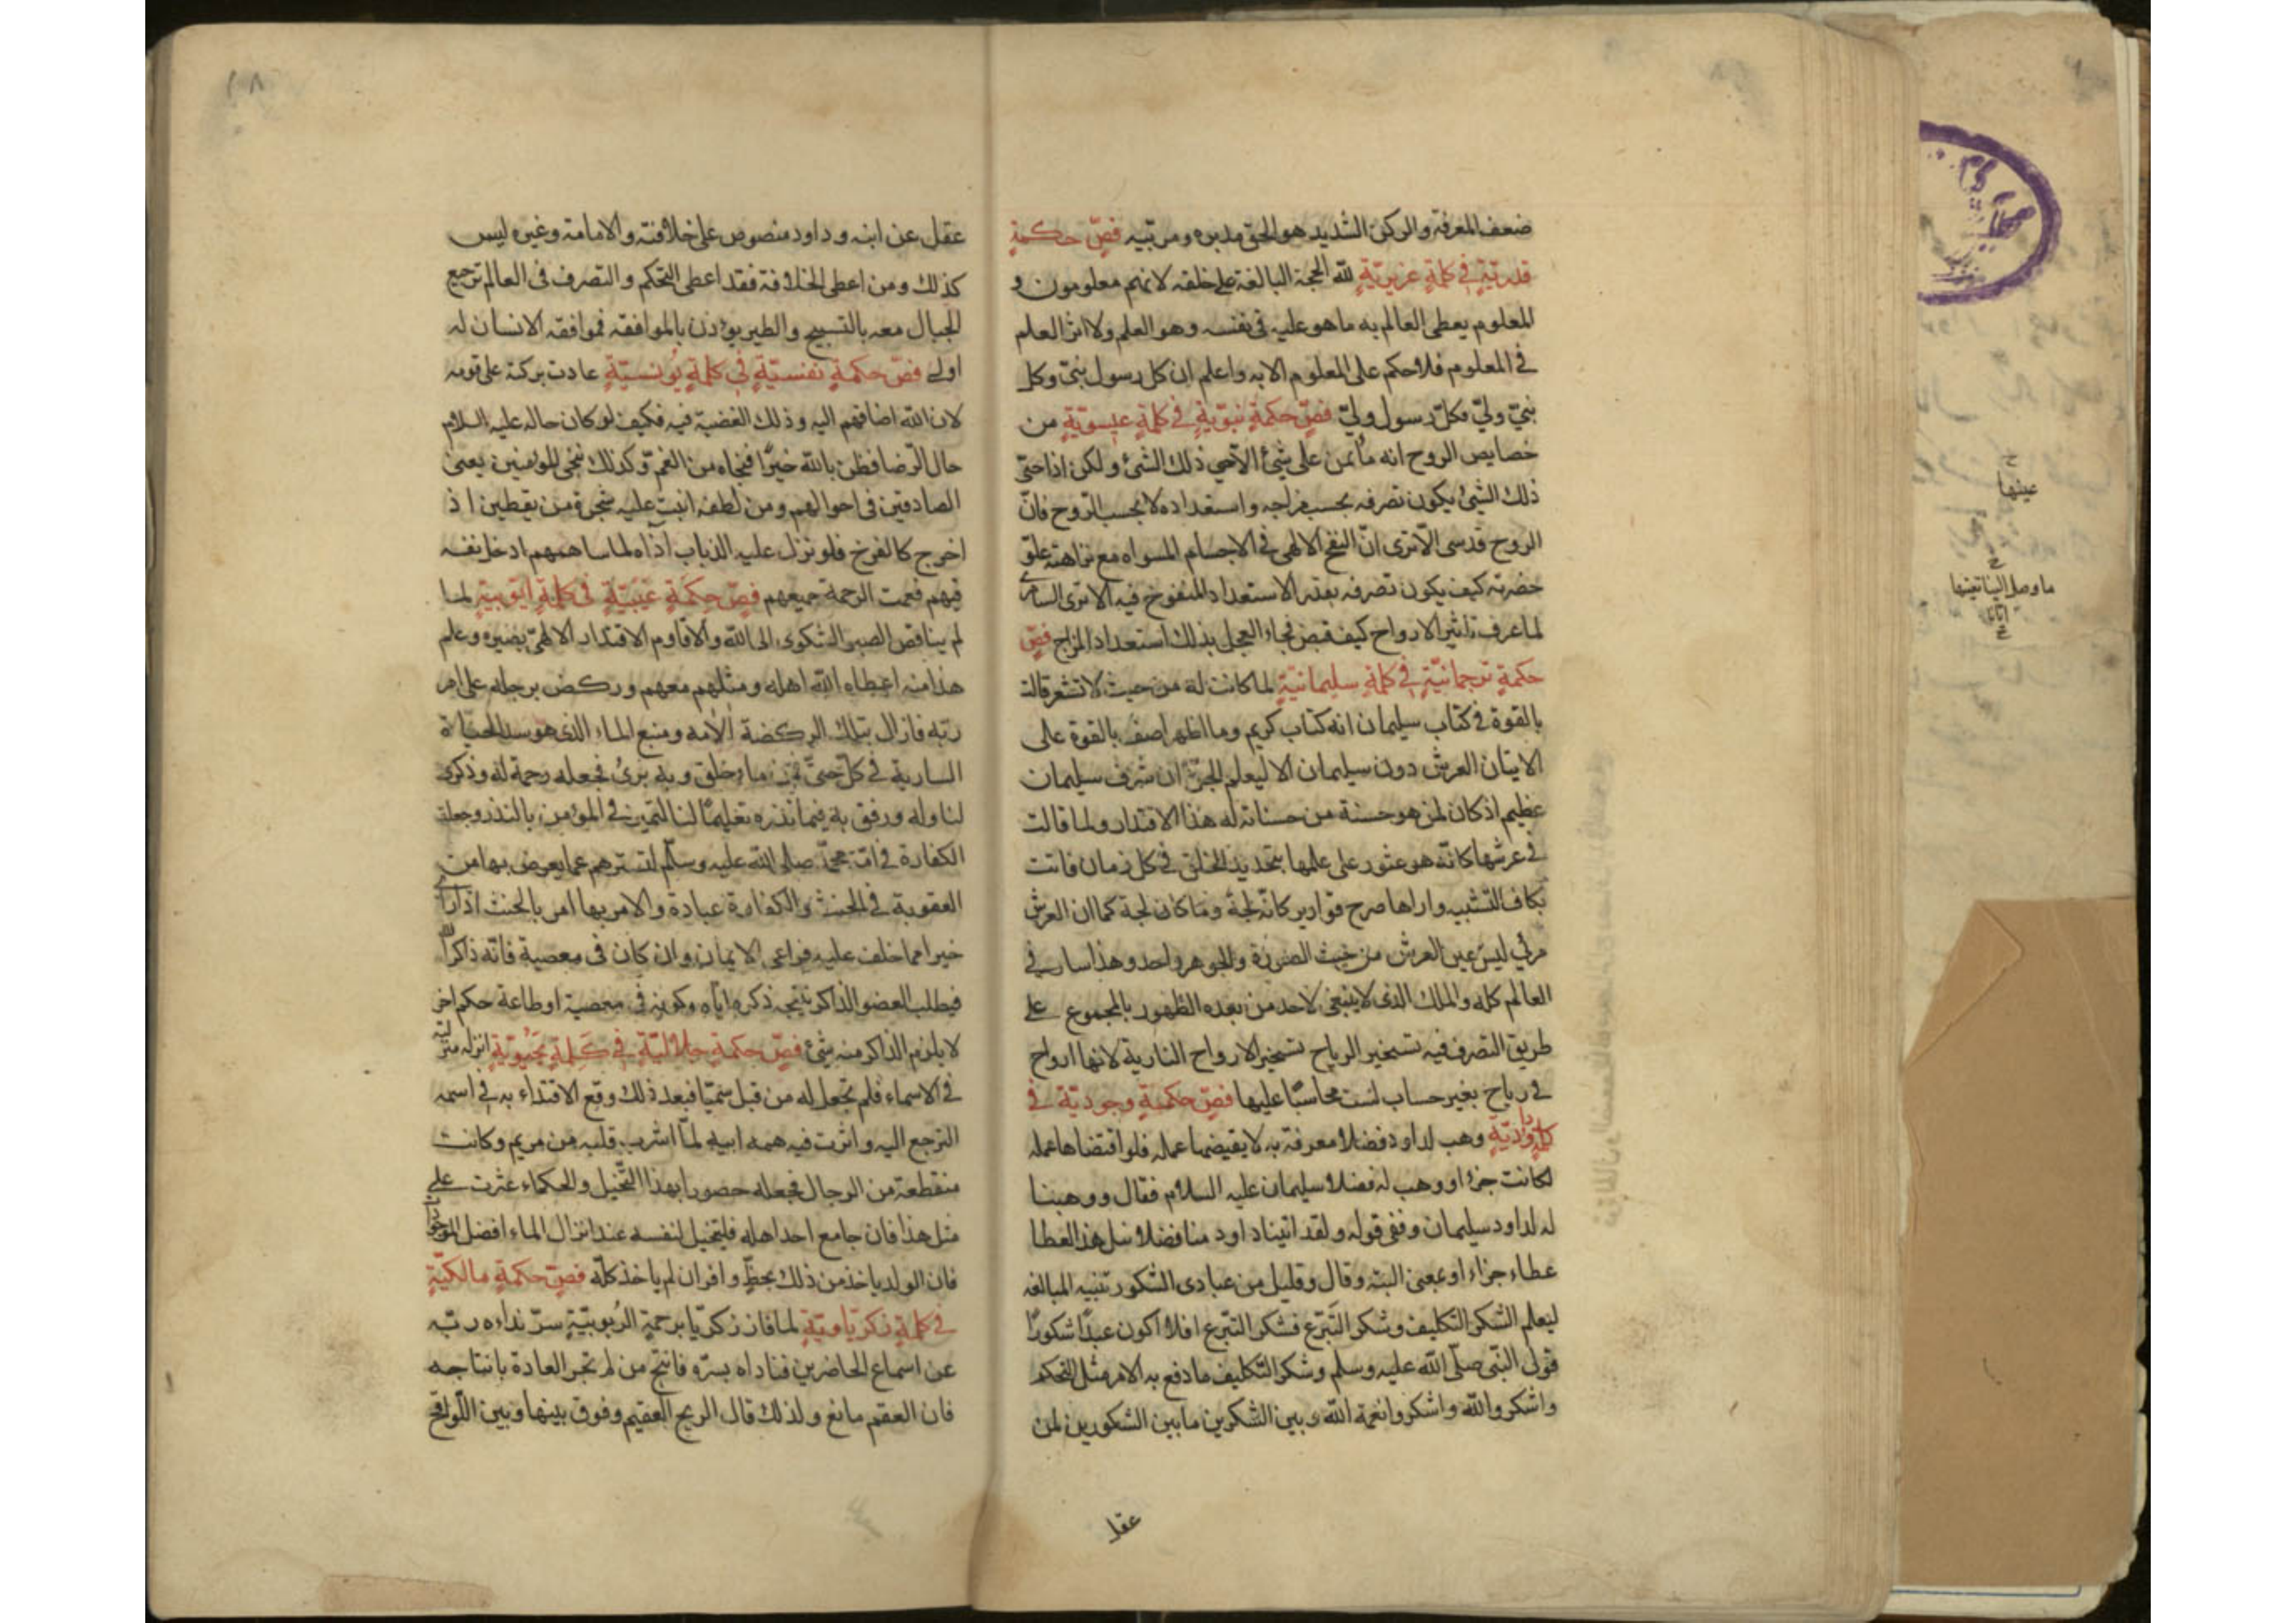 ضعف المعرفة والركن الشديد هو الحق مدبره ومربيه فصّ حكمةٍ
قدريّةٍ في كلمةٍ عزيريّةٍ لله الحجة البالغة على خلقه لانهم معلومون و
المعلوم يعطى العالم به ما هو عليه في نفسه وهو العلم ولا اثر للعلم
في المعلوم فلا حكم على المعلوم الا به واعلم ان كل رسول نبيّ وكل
نبيّ وليّ فكلّ رسول وليّ فصّ حكمةٍ نبويّةٍ في كلمةٍ عيسويّةٍ من
خصايص الروح انه ما يمن على شئ الا حيي ذلك الشئ ولكن اذا حيّ
ذلك الشئ يكون تصرفه بحسب مزاجه واستعداده لا بحسب الروح فانّ
الروح قدسى الا ترى انّ النفخ الالهى في الاجسام المسواه مع نزاهته علوّ
حضرته كيف يكون تصرفه بقدر الاستعداد المنفوخ فيه الا ترى السامرى
لما عرف تاثير الارواح كيف قبض فجاء العجل بذلك استعداد المزاج فصّ
حكمةٍ ترجمانيّةٍ في كلمةٍ سليمانيّةٍ لما كانت له من حيث لا تشعر قالت
بالقوة في كتاب سليمان انه كتاب كريم وما اظهر اصف بالقوة على
الاتيان العرش دون سليمان الا ليعلم الجنّ ان شرف سليمان
عظيم اذ كان لمن هو حسنة من حسناته له هذا الاقتدار ولما قالت
في عرشها كانّه هو عثور على علمها بتجديد الخلق في كل زمان فاتت
بكاف التشبيه واراها صرح قوارير كانّه لجة وما كان لجة كما ان العرش
مرئي ليس عين العرش من حيث الصورة والجوهر واحد وهذا سار في
العالم كله والملك الذى لا ينبغى لاحد من بعده الظهور بالمجموع على
طريق التصرف فيه تسخير الرياح تسخير الارواح النارية لانها ارواح
في رياح بغير حساب لست محاسبًا عليها فصّ حكمةٍ وجوديّةٍ في
كلمةٍ داوديّةٍ وهب لداود فضلا معرفة به لا يقيضها عمله فلو اقتضاها عمله
لكانت جزاء ووهب له فضلا سليمان عليه السلام فقال ووهبنا
له لداود سليمان وفى قوله ولقد اتينا داود منا فضلا سل هذا العطا
عطاء جزاء او بمعنى البته وقال وقليل من عبادى الشكور تنبيه المبالغه
ليعلم الشكر التكليف وشكر التبرّع فشكر التبرع افلا اكون عبدًا شكورًا
قول النبّى صلّى الله عليه وسلم وشكر التّكليف ما دفع به الامر مثل التحكم
واشكروا لله واشكروا نعمة الله وبين الشكرين ما بين الشكورين لمن
عقل
عقل عن ابنه وداود منصوص على خلافته والامامة وغيره ليس
كذلك ومن اعطى الخلافة فقد اعطى التحكم والتصرف فى العالم ترجيع
الجبال معه بالتسبيح والطير يؤذن بالموافقه فموافقه الانسان له
اولى فصّ حكمةٍ نفسيّةٍ في كلمةٍ يُونسيّةٍ عادت بركته على قومه
لان الله اضافهم اليه وذلك الغضبة فيه فكيف لو كان حاله عليه السلام
حال الرّضا فظن بالله خيرًا فنجاه من الغمّ وكذلك ننجى المؤمنين يعنى
الصادقين فى احوالهم ومن لطفه انبت عليه شجرة من يقطين اذ
اخرج كالفرخ فلو نزل عليه الذباب آذاه لما ساهمهم ادخل نفسه
فيهم فعمت الرحمة جميعهم فصّ حكمةٍ غيبيّةٍ في كلمةٍ ايّوبيةٍ لما
لم يناقض الصبر الشكوى الى الله والا قاوم الاقتدار الالهىّ بضيره وعلم
هذا منه اعطاه الله اهله ومثلهم معهم وركض برجله على امر
ربّه فازال بتلك الركضة الامه ومنبع الماء الذى هو سر الحياة
السارية في كلّ حيّ فمن ماء خلق وبه برئ فجعله رحمة له وذكرى
لنا وله ورفق به فيما نذره تعليمًا لنا التميز في المؤمن بالنذر وجعلة
الكفارة في امّة محمّد صلى الله عليه وسلّم لتسترهم عما يعرض بها من
العقوبة في الحنث والكفارة عبادة والامر بها امر بالحنث اذا راى
خيرا مما حلف عليه فراعى الايمان وان كان فى معصية فانّه ذاكر الله
فيطلب العضو الذاكر نتيجه ذكره اياه وكونه في معصية او طاعة حكم اخر
لا يلزم الذاكر منه شئ فصّ حكمةٍ جلاليّةٍ في كَلِمةٍ يَحْيويّةٍ انزله منزلته
في الاسماء فلم تجعل له من قبل سميّا فبعد ذلك وقع الاقتداء به في اسمه
الترجع اليه واثرت فيه همه ابيه لمّا اشرب قلبه من مريم وكانت
منقطعة من الرجال فجعله حصورا بهذا التّخيل والحكماء عثرت على
مثل هذا فان جامع احد اهله فليتخيل لنفسه عند انزال الماء افضل الموجودات
فان الولد ياخذ من ذلك بحظٍّ وافر ان لم ياخذ كلّه فصّ حكمةٍ مالكيّةٍ
في كلمةٍ زكريّاويّةٍ لما فاز زكريّا برحمة الربوبيّةِ سرّ نداءه ربّه
عن اسماع الحاضرين فناداه بسرّه فانتج من لم تجر العادة بانتاجه
فان العقم مانع ولذلك قال الريح العقيم وفرق بينها وبين اللّواقح
عينها
ما وصل الينا تعينها